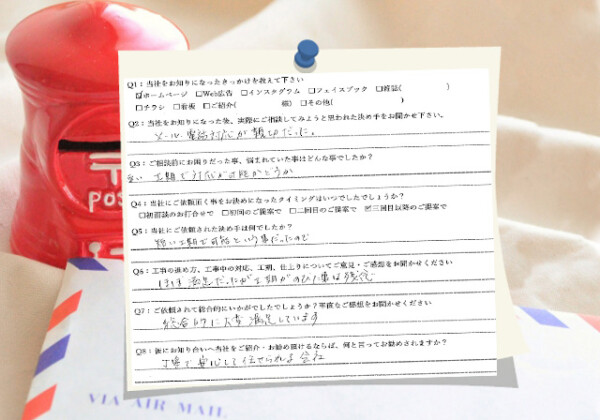 Q1：当社をお知りになったきっかけを教えて下さい
☑ホームページ □Web広告 □インスタグラム □フェイスブック □雑誌( )
□チラシ □看板 □ご紹介( 様) □その他( )
Q2：当社をお知りになった後、実際にご相談してみようと思われた決め手をお聞かせ下さい。
メール、電話対応が親切だった。
Q3：ご相談前にお困りだった事、悩まれていた事はどんな事でしたか？
短い工期で対応が可能かどうか
Q4：当社にご依頼頂く事をお決めになったタイミングはいつでしたでしょうか？
□初面談のお打合せで □初回のご提案で □二回目のご提案で ☑三回目以降のご提案で
Q5：当社にご依頼された決め手は何でしたか？
短い工期で可能という事だったので
Q6：工事の進め方、工事中の対応、工期、仕上りについてご意見・ご感想をお聞かせください
ほぼ満足だったが工期がのびた事は残念
Q7：ご依頼されて総合的にいかがでしたでしょうか？率直なご感想をお聞かせください
総合的に大変満足しています
Q8：仮にお知り合いへ当社をご紹介・お勧め頂けるならば、何と言ってお勧めされますか？
丁寧で安心して任せられる会社
POS
VIA AIR MAIL